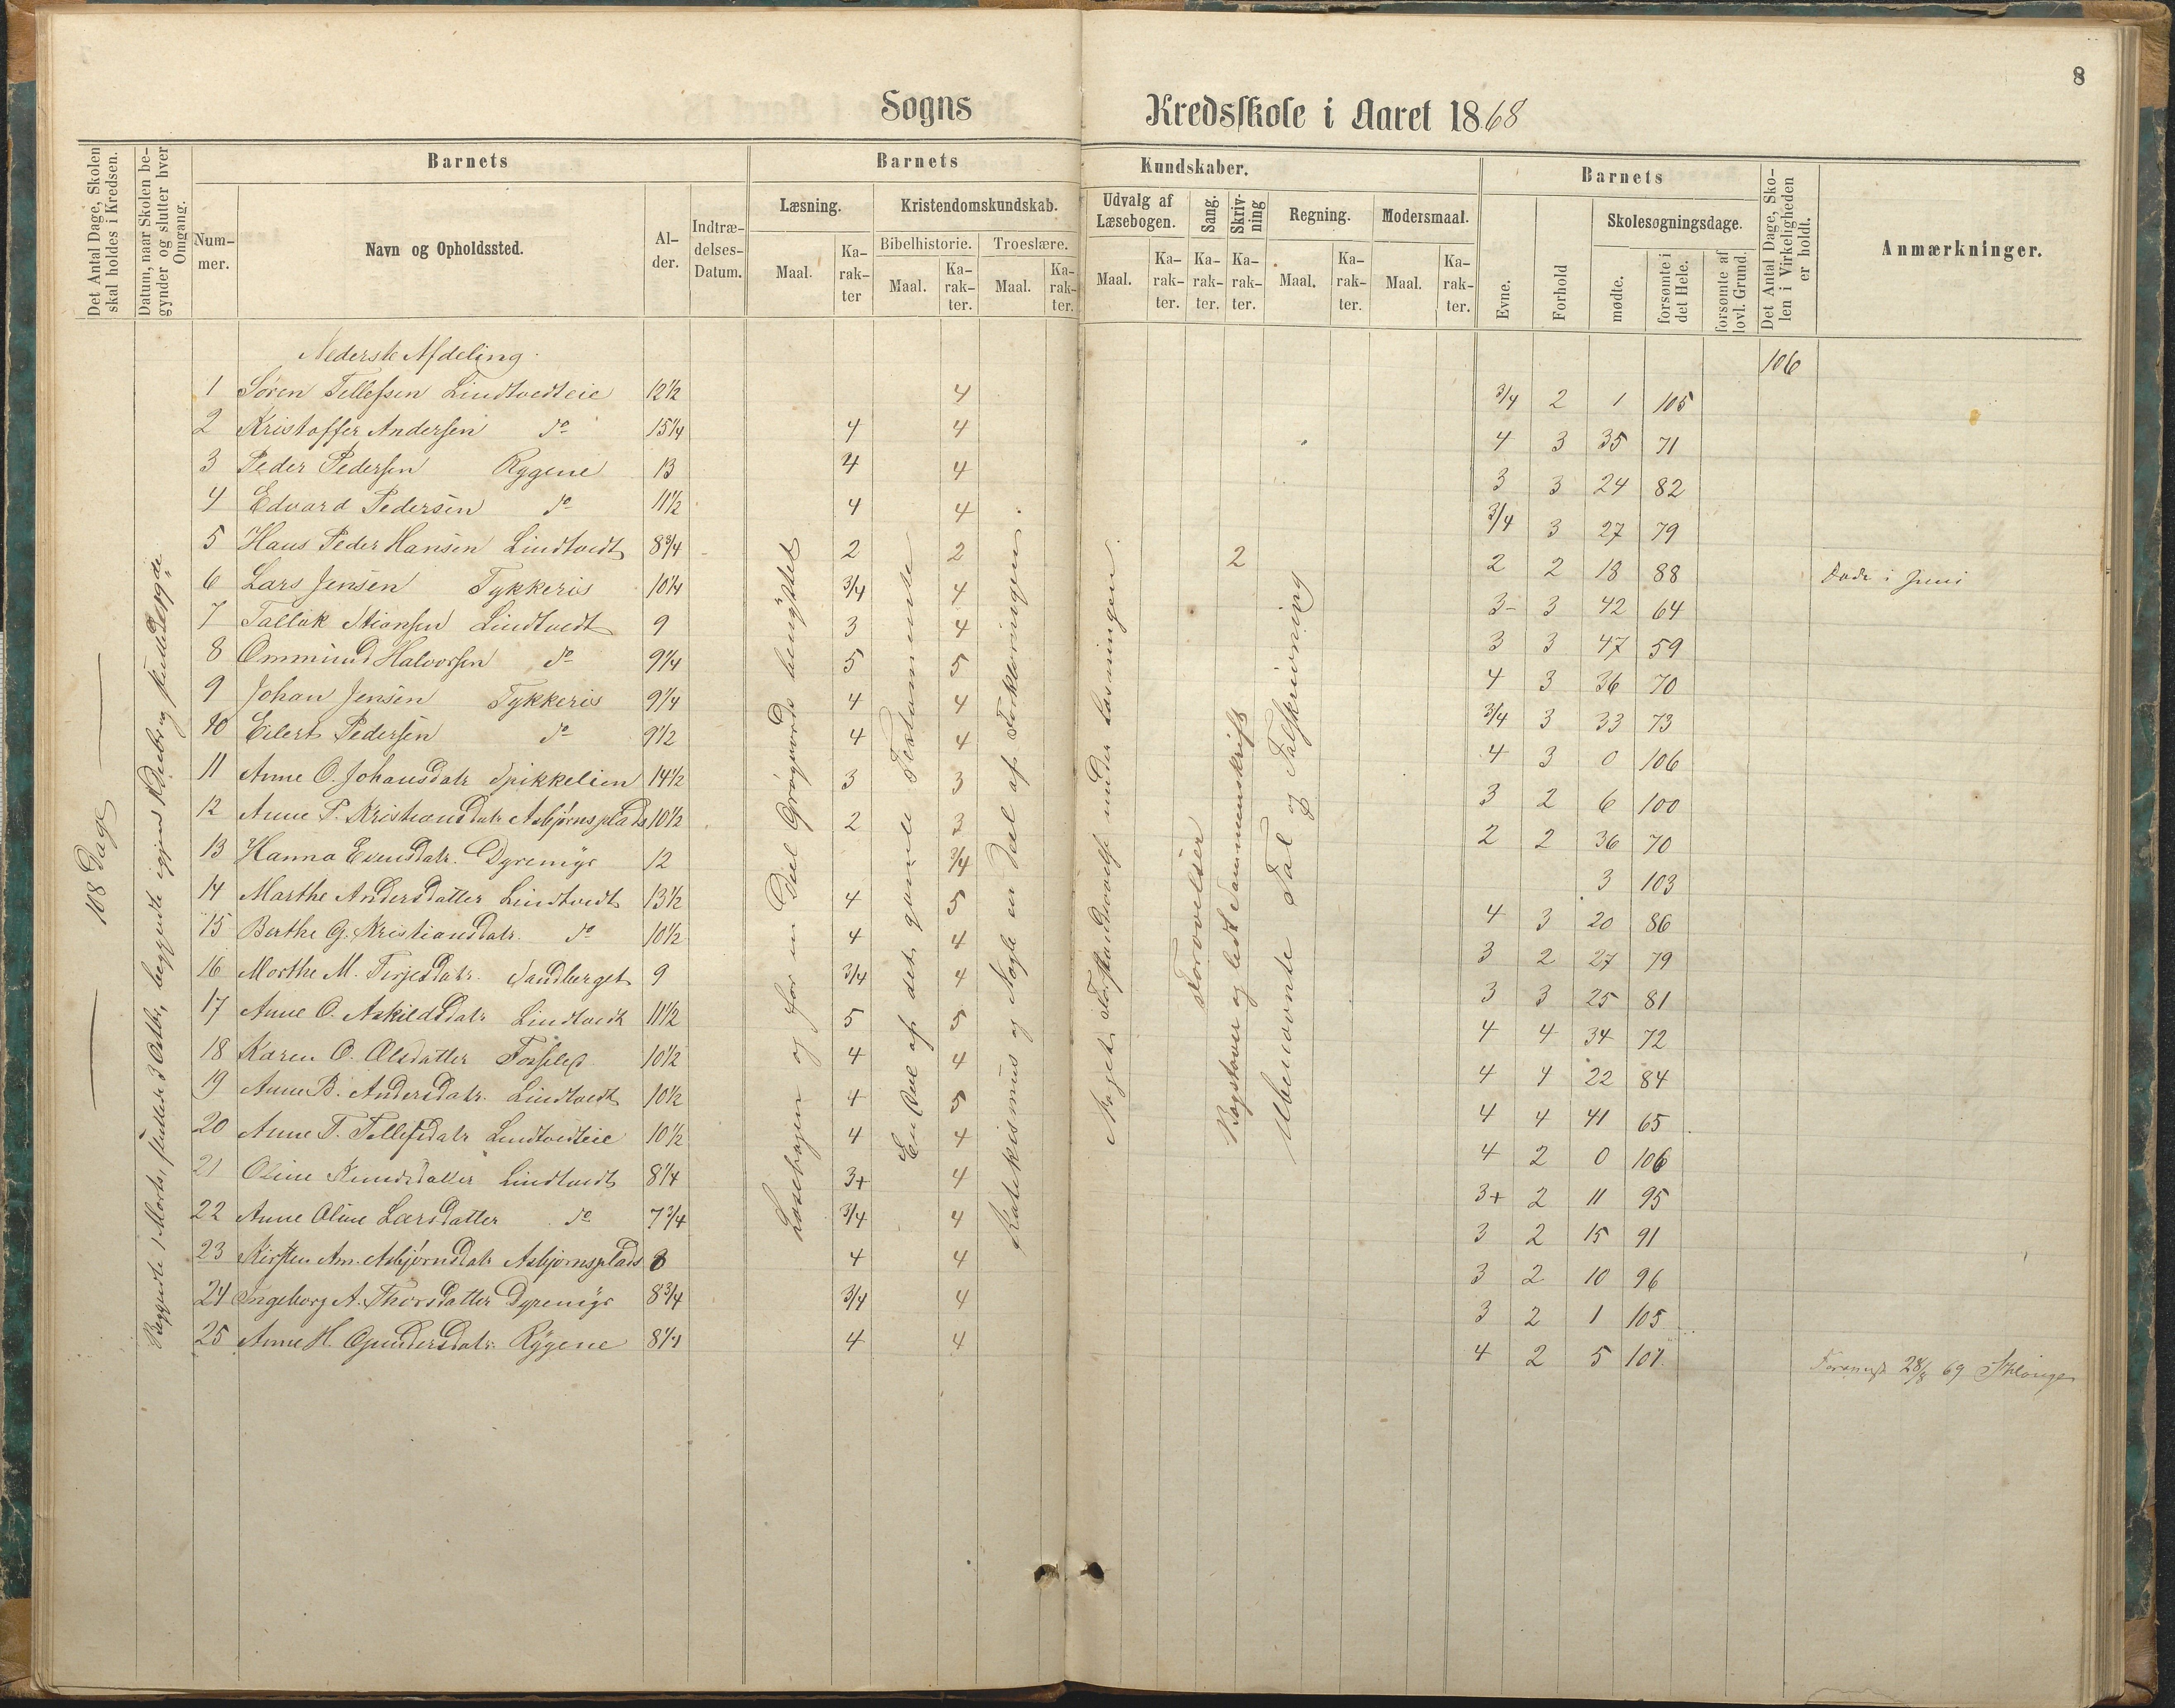 8
Sogns Kredsskole i Aaret 1868
Det Antal Dage, Skolen skal holdes i Kredsen.
Datum, naar Skolen begynder og slutter hver Omgang.
Barnets
Nummer.
Navn og Opholdssted.
Alder.
Indtrædelses-Datum.
Barnets Kundskaber.
Læsning.
Maal.
Karakter
Kristendomskundskab.
Bibelhistorie.
Maal.
Karakter.
Troeslære.
Maal.
Karakter.
Udvalg af Læsebogen.
Maal.
Karakter.
Sang.
Karakter.
Skrivning
Karakter.
Regning.
Maal.
Karakter.
Modersmaal.
Maal.
Karakter.
Barnets
Evne.
Forhold
Skolesøgningsdage.
mødte.
forsømte i det Hele.
forsømte af lovl. Grund.
Det Antal Dage, Skolen i Virkeligheden er holdt.
Anmærkninger.
Nederste Afdeling. 106
1 Søren Tellefsen Lindtvedteie 12½ 4 3/4 2 1 105
2 Kristoffer Andersen do 15¼ 4 4 4 3 35 71
3 Peder Pedersen Rygene 13 4 4 3 3 24 82
4 Edvard Pedersen do 11½ 4 4 3/4 3 27 79
5 Hans Peder Hansen Lindtvedt 8¾ 2 2 2 2 2 18 88 i Juni
6 Lars Jensen Tykkeriis 10¼ 3/4 4 3- 3 42 64
7 Tallak Lindtvedt 9 3 4 3 3 47 59
8 Ommund Halvorsen do 9¼ 5 5 4 3 36 70
9 Johan Jensen Tykkeris 9¼ 4 4 3/4 3 33 73
10 Eilert Pedersen do 9½ 4 4 4 3 0 106
11 Anne O. Johansdatr Spikkelien 14½ 3 3 3 2 6 100
12 Anne P. Kristiansdatr Asbjørnsplads 10½ 2 3 2 2 36 70
13 Hanna Evensdatr. Dyremyr 12 3/4 3 103
14 Marthe Andersdatter Lindtvedt 13½ 4 5 4 3 20 86
15 Berthe G. Kristiansdatr. do 10½ 4 4 3 2 27 79
16 Marthe M. Terjesdatr. Sandberget 9 3/4 4 3 3 25 81
17 Anne O. Askildsdatr Lindtvedt 11½ 5 5 4 4 34 72
18 Karen O. Olsdatter 10½ 4 4 4 4 22 84
19 Anne B. Andersdatr. Lindtvedt 10½ 4 5 4 4 41 65
20 Anne T. Tellefsdatr Lindtvedteie 10½ 4 4 4 2 0 106
21 Oline Knudsdatter Lindtvedt 8¼ 3+ 4 3+ 2 11 95
22 Anne Oline Larsdatter do 7¾ 3/4 4 3 2 15 91
23 Kirsten An. Asbjørnsdatr Asbjørnsplads 8 4 4 3 2 10 96
24 Ingeborg A. Thorsdatter Dyremyr 8¾ 3/4 4 3 2 1 105
25 Anne H. Gundersdatr. Rygene 8¼ 4 4 4 2 5 101
28/8 69
108 Dage
Begyndte 1 Marts, sluttede 3 Octbr, begyndte igjen
Læsebogen og for en Deel Grøgaards benyttet
En Del af det gamle Testamente
Katekismus og Nogle en Del af Forklaringen.
Noget Forstandsøvelse under Læsningen.
Forøvelser
Bogstaver og let Sammenskrift
Ubenævnte Tal og Talskrivning